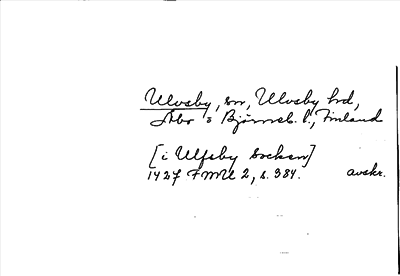 Ulvsby, sn, Ulvsby hd,
Åbo o Björneb. l., Finland
[i Ulfsby socken]
1427 FMU 2, s. 384. avskr.